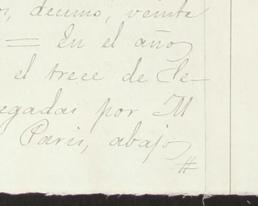 s, décimo, veinte
= En el año
el trece de Fe-
egadas por M
Paris, abajo
#